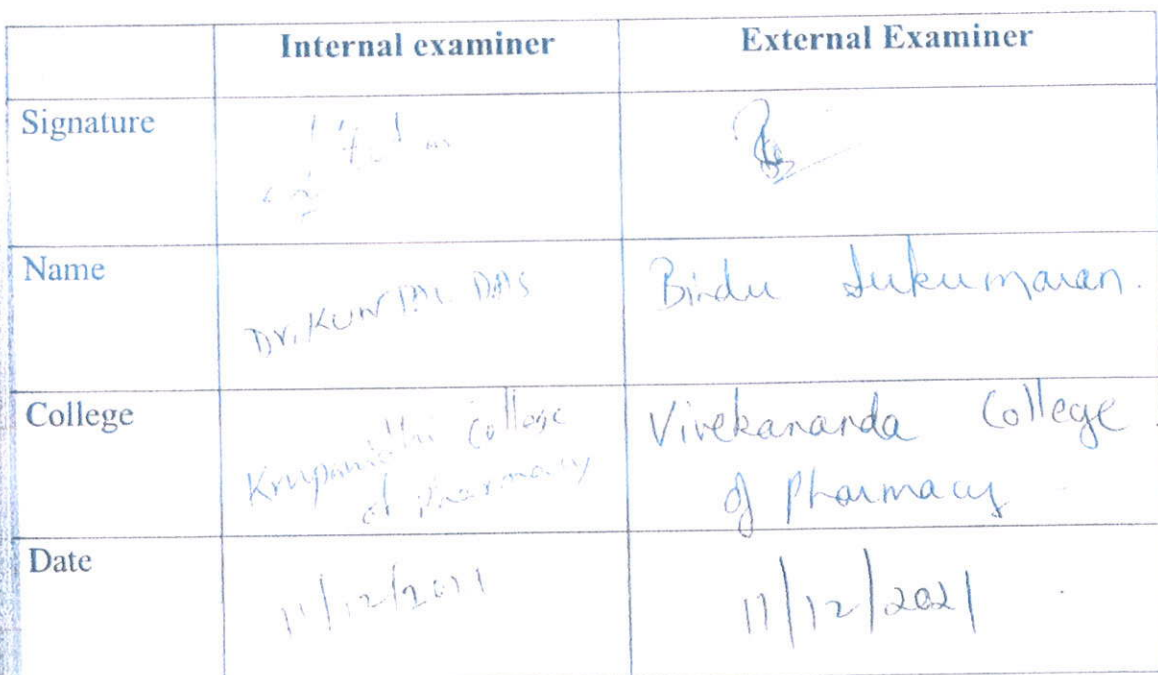 Internal examiner External Examiner
Signature
Name Dr. KUNTAL DAS Bindu Sukumaran.
College Krupanidhi College Vivekananda College
of Pharmacy of Pharmacy
Date 11/12/2021 11/12/2021